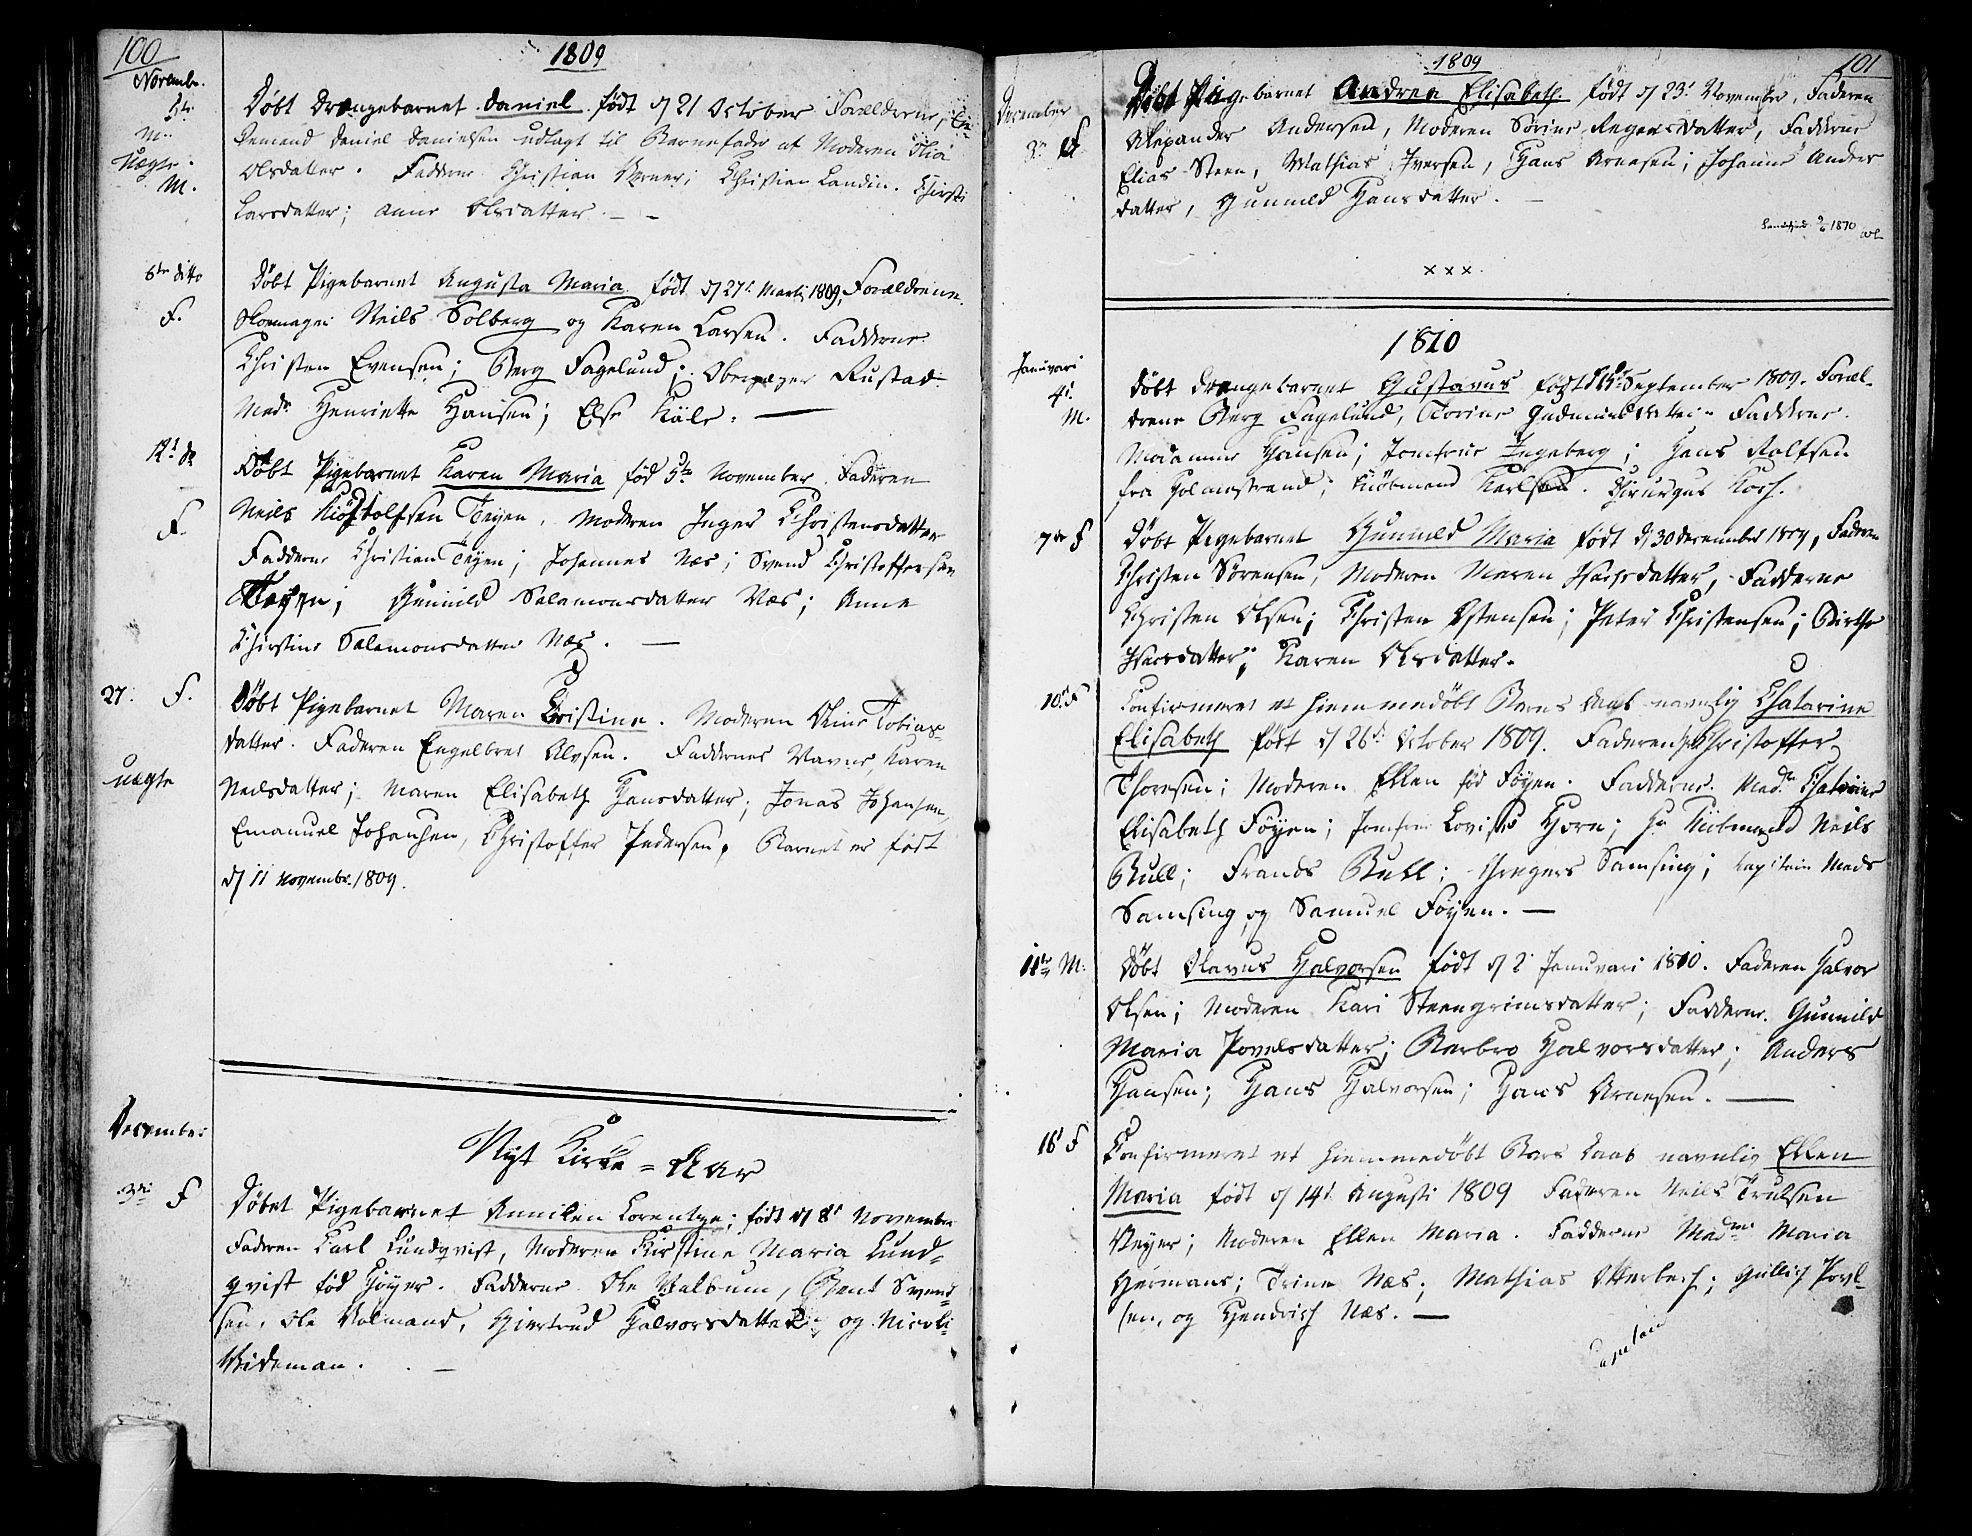 100
1809
Novembr.
5te
M.
uægte
M.
Døbt Drængebarnet Daniel født d 21 October Forældrene,
Daniel Danielsen udlagt til Barnefader af Moderen
Olsdatter. Faddere Christian Christian Landin.
Larsdatter; Anne Olsdatter. —
6te ditto
F.
Døbt Pigebarnet Augusta Maria født d 27t Martj 1809, Forældrene
Skomager Neils Solberg og Karen Larsen. Fadderne
Christen Evensen; Berg Fagelund; Oberjæger Rustad
Mad. Henriette Hansen; Else —
12t do
F.
Døbt Pigebarnet Karen Maria fød 5te November. Faderen
Neils Tøyen, Moderen Inger Christensdatter
Fadderne Christian Tøyen; Johannes Næs; Svend Christoffersen
Tøyen; Gunnild Salamonsdatter Næs; Anne
Chirstine Salamonsdatter Næs. —
27. F.
uægte
Døbt Pigebarnet Maren Christine. Moderen Tobias-
datter. Faderen Engelbret Alvsen. Faddernes Navne, Karen
Neilsdatter; Maren Elisabeth Hansdatter; Jonas Johansen,
Emanuel Johansen, Christoffer Pedersen, Barnet er født
d 11 Novembr. 1809.
December
Nyt Kirke-Aar
3die F
Døbet Pigebarnet Lorentze; født d 8t November
Faderen Carl Lundqvist, Moderen Kirstine Maria Lund-
qvist fød Høyer. Fadderne Ole Bent Svend-
sen, Ole Volmand, Giertrud Halvorsdatter og Nicoli
Wideman. —
1809
101
December
3die F
Døbt Pigebarnet Andrea Elisabeth født d 23t November, Faderen
Alexander Andersen, Moderen Sørine datter, Fadderne
Elias Steen, Mathias Iversen, Hans Arnesen; Johanne Anders
datter, Gunnild Hansdatter. —
1870
x x x
1810
Januari
4t
M.
Døbt Drængebarnet Gustavus født September 1809. Foræl-
drene Berg Fagelund, Torine Gudmundsdatter. Fadderne.
Madamme Hansen; Jomfrue Ingeberg; Hans Rolfsen
fra Holmestrand; Kiøbmand Karlsen. Chirurgus Koch.
7de F
Døbt Pigebarnet Gunnild Maria født d 30 december 1809, Faderen
Christen Sørensen, Moderen Maren Isachsdatter, Fadderne
Christen Olsen; Christen Ostensen; Peter Christensen; Birthe
datter; Karen Olsdatter.
10t F
Confirmeret et hiemmedøbt Barns daab navnlig Chatarine
Elisabeth født d 26t October 1809. Faderen Christoffer
Thoresen; Moderen Ellen fød Føyen. Fadderne. Mad. Chatarine
Elisabeth Føyen; Jomfrue Lovise Horn; Hr Kiøbmand Neils
Bull; Frands Bull; Gregers Samsing; Capitain Mads
Samsing, og Samuel Føyen. —
11te M.
Døbt Olavus Halvorsen født d 2 Januari 1810. Faderen Halvor
Olsen; Moderen Kari Steengrimsdatter; Fadderne. Gunnild
Maria Povelsdatter; Barbro Halvorsdatter; Anders
Hansen; Hans Halvorsen; Hans Arnesen. —
18t F
Confirmeret et hiemmedøbt Bars daab navnlig Ellen
Maria født d 14t Augusti 1809 Faderen Neils Trulsen
Moderen Ellen Maria. Fadderne Madme Maria
Hermans; Trine Næs; Mathias Gullich Povl-
sen, og Hendrich Næs. —